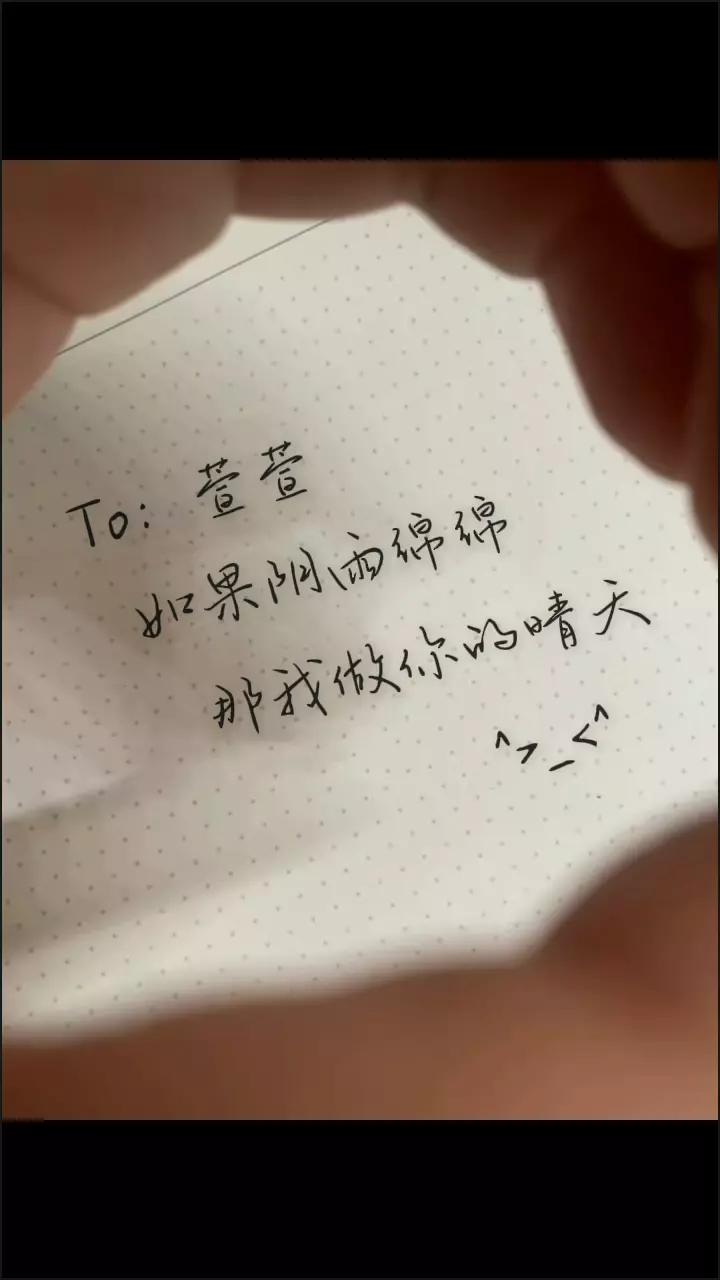 To: 萱萱
如果阴雨绵绵
那我做你的晴天
^>_<^